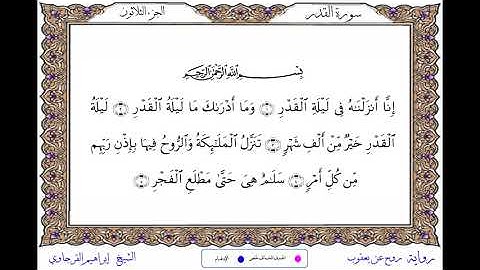 سورة القدر
الجزء الثلاثون
بِسْمِ ٱللَّهِ ٱلرَّحْمَٰنِ ٱلرَّحِيمِ
إِنَّا أَنزَلْنَٰهُ فِى لَيْلَةِ ٱلْقَدْرِ ۝ وَمَا أَدْرَىٰكَ مَا لَيْلَةُ ٱلْقَدْرِ ۝ لَيْلَةُ
ٱلْقَدْرِ خَيْرٌ مِّنْ أَلْفِ شَهْرٍ ۝ تَنَزَّلُ ٱلْمَلَٰٓئِكَةُ وَٱلرُّوحُ فِيهَا بِإِذْنِ رَبِّهِم
مِّن كُلِّ أَمْرٍ ۝ سَلَٰمٌ هِىَ حَتَّىٰ مَطْلَعِ ٱلْفَجْرِ ۝
رواية روح عن يعقوب
الإدغام
الشيخ إبراهيم الفرجاوي